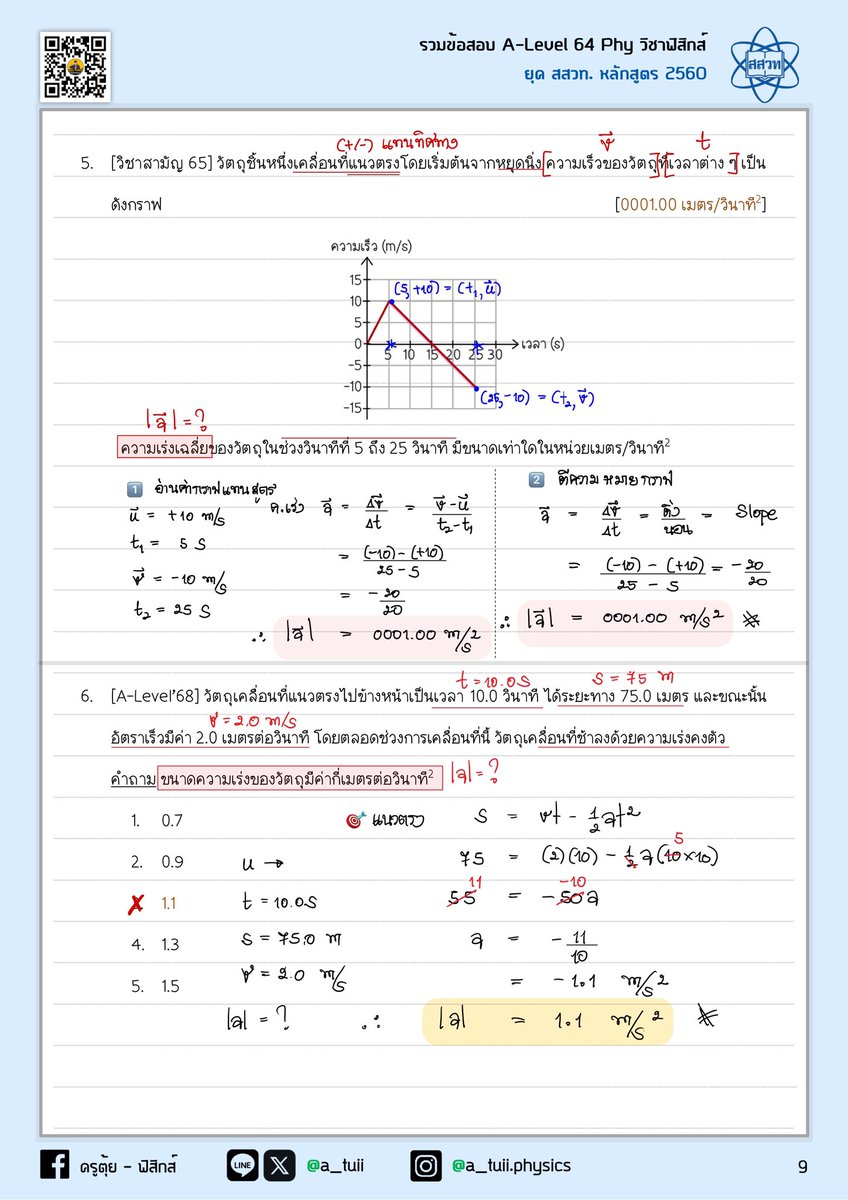 รวมข้อสอบ A-Level 64 Phy วิชาฟิสิกส์
ยุค สสวท. หลักสูตร 2560
สสวท
(+/-) แทนทิศทาง
v⃗
t
5. [วิชาสามัญ 65] วัตถุชิ้นหนึ่งเคลื่อนที่แนวตรงโดยเริ่มต้นจากหยุดนิ่ง ความเร็วของวัตถุที่เวลาต่าง ๆ เป็น
ดังกราฟ [0001.00 เมตร/วินาที²]
ความเร็ว (m/s)
15
10
5
0
-5
-10
-15
5 10 15 20 25 30
เวลา (s)
(5, +10) = (t₁, u⃗)
(25, -10) = (t₂, v⃗)
|a⃗| = ?
ความเร่งเฉลี่ยของวัตถุในช่วงวินาทีที่ 5 ถึง 25 วินาที มีขนาดเท่าใดในหน่วยเมตร/วินาที²
1 อ่านค่ากราฟแทนสูตร
u⃗ = +10 m/s
t₁ = 5 s
v⃗ = -10 m/s
t₂ = 25 s
ค.เร่ง a⃗ = Δv⃗/Δt = (v⃗-u⃗)/(t₂-t₁)
= ((-10) - (+10))/(25 - 5)
= -20/20
∴ |a⃗| = 0001.00 m/s²
2 ตีความหมายกราฟ
a⃗ = Δv⃗/Δt = ดิ่ง/นอน = Slope
= ((-10) - (+10))/(25 - 5) = -20/20
∴ |a⃗| = 0001.00 m/s²
t = 10.0 s
s = 75 m
6. [A-Level'68] วัตถุเคลื่อนที่แนวตรงไปข้างหน้าเป็นเวลา 10.0 วินาที ได้ระยะทาง 75.0 เมตร และขณะนั้น
v = 2.0 m/s
อัตราเร็วมีค่า 2.0 เมตรต่อวินาที โดยตลอดช่วงการเคลื่อนที่นี้ วัตถุเคลื่อนที่ช้าลงด้วยความเร่งคงตัว
คำถาม ขนาดความเร่งของวัตถุมีค่ากี่เมตรต่อวินาที² |a| = ?
1. 0.7
2. 0.9
1.1
4. 1.3
5. 1.5
u →
t = 10.0 s
s = 75.0 m
v = 2.0 m/s
|a| = ?
แนวตรง s = vt - 1/2 at²
75 = (2)(10) - 1/2 a(10×10)
5
11 -10
55 = -50a
a = -11/10
= -1.1 m/s²
∴ |a| = 1.1 m/s²
ครูตุ้ย - ฟิสิกส์
LINE
@a_tuii
@a_tuii.physics
9